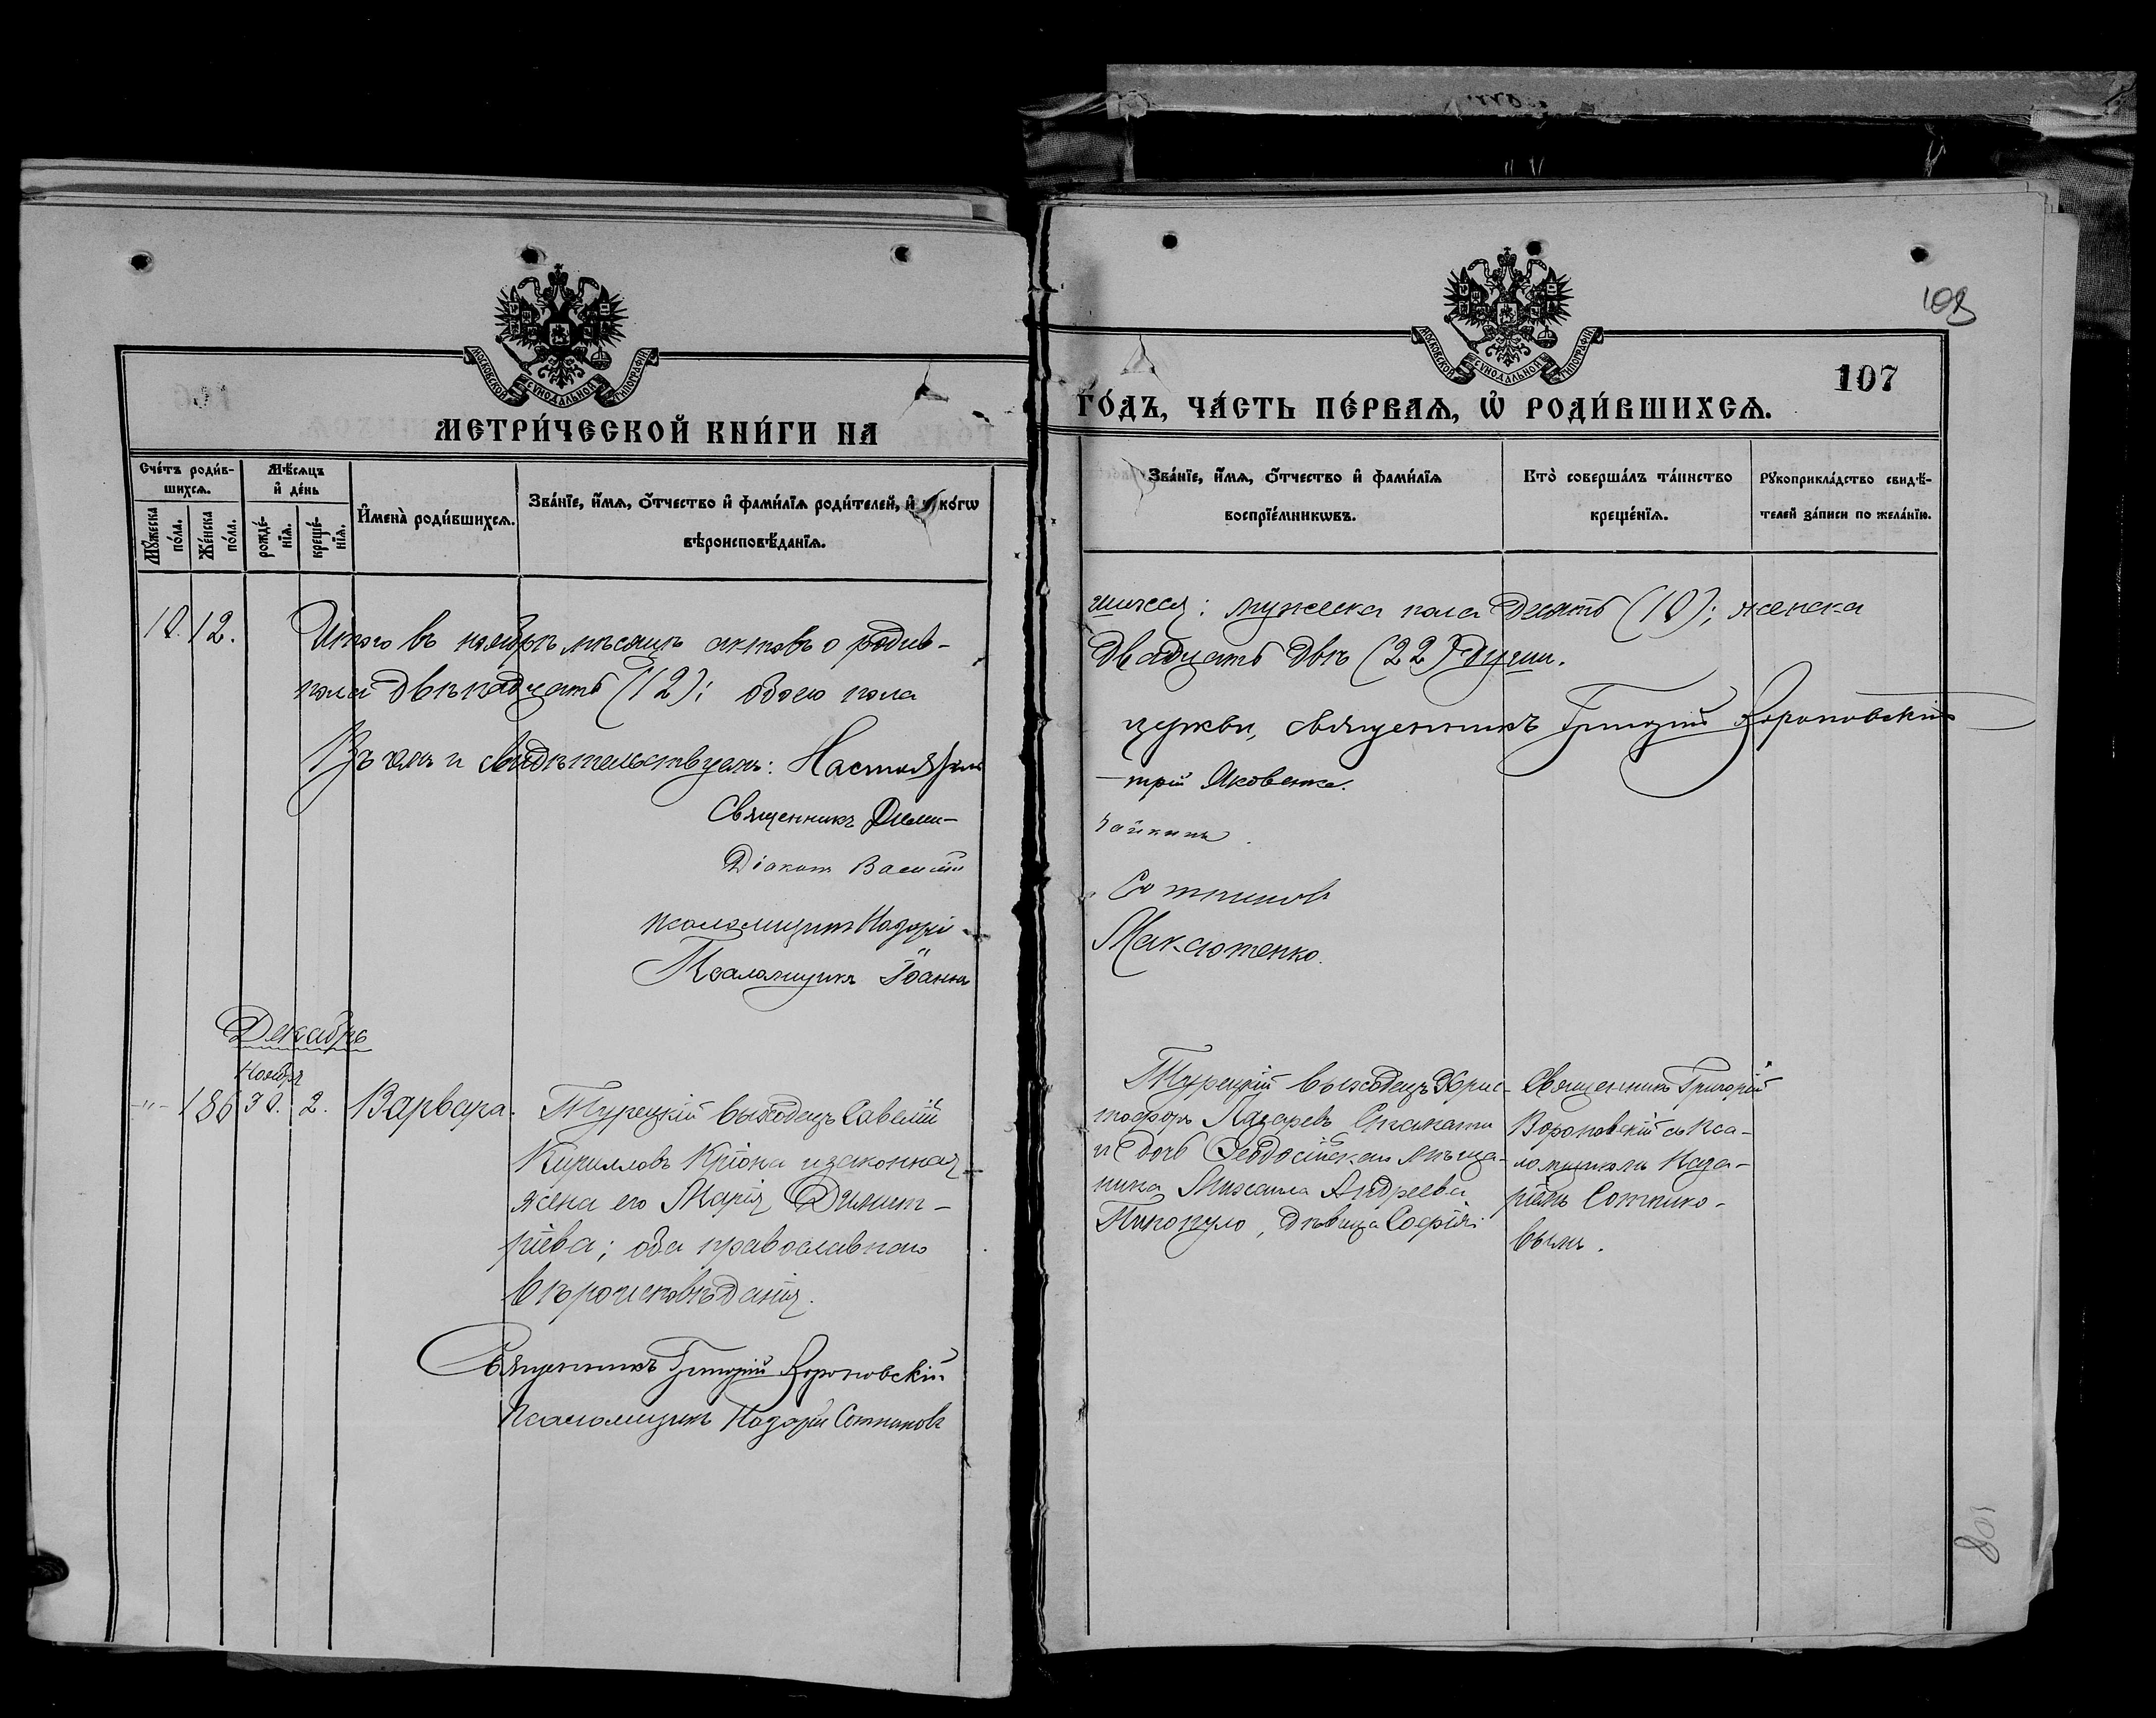 МОСКОВСКОЙ СѴНОДАЛЬНОЙ ТИПОГРАФІИ
МЕТРИ́ЧЕСКОЙ КНИ́ГИ НА
Сче́тъ роди́в-
шихсѧ.
Мѣ́сѧцъ
и҆ де́нь
Мꙋ́жеска
по́ла.
Же́нска
по́ла.
рожде́-
нїѧ.
креще́-
нїѧ.
И҆мена̀ роди́вшихсѧ.
Зва́нїе, и҆́мѧ, ѻ҆́тчество и҆ фами́лїѧ роди́телей, и҆ ко́гѡ
вѣроисповѣ́данїѧ.
10. 12. Итого въ ноябрѣ мѣсяцѣ актовъ о родив-
пола двѣнадцать (12); обоего пола
въ чемъ и свидѣтельствуемъ: Настоятель
Священникъ Дими-
Діаконъ Василій
псаломщикъ Назарій
Псаломщикъ Іоаннъ
Декабрь
Ноября
-"- 186 30. 2. Варвара. Турецкій выходецъ Савелій
Кирилловъ Кріона и законная
жена его Марія Димит-
ріева; оба православнаго
вѣроисповѣданія.
Священникъ Григорій Вороновскій
Псаломщикъ Назарій Сотниковъ
108
МОСКОВСКОЙ СѴНОДАЛЬНОЙ ТИПОГРАФІИ
107
ГО́ДЪ, ЧА́СТЬ ПЕ́РВАѦ, Ѡ҆ РОДИ́ВШИХСѦ.
Зва́нїе, и҆́мѧ, ѻ҆́тчество и҆ фами́лїѧ
воспрїе́мникѡвъ.
Кто̀ соверша́лъ та́инство
креще́нїѧ.
Рꙋкоприкла́дство свидѣ́-
телей за́писи по жела́нїю.
шихся: мужеска пола десять (10); женска
двадцать двѣ (22) души.
церкви, священникъ Григорій Вороновскій
-трій Яковенко.
Сотниковъ
Максютенко.
Турецкій выходецъ Хрис-
тофоръ Лазаревъ Спанаки
и дочь Ѳеодосійскаго мѣща-
нина Михаила Андреева
Пикопуло, дѣвица Софія.
Священникъ Григорій
Вороновскій съ Пса-
ломщикомъ Наза-
ріемъ Сотнико-
вымъ.
108